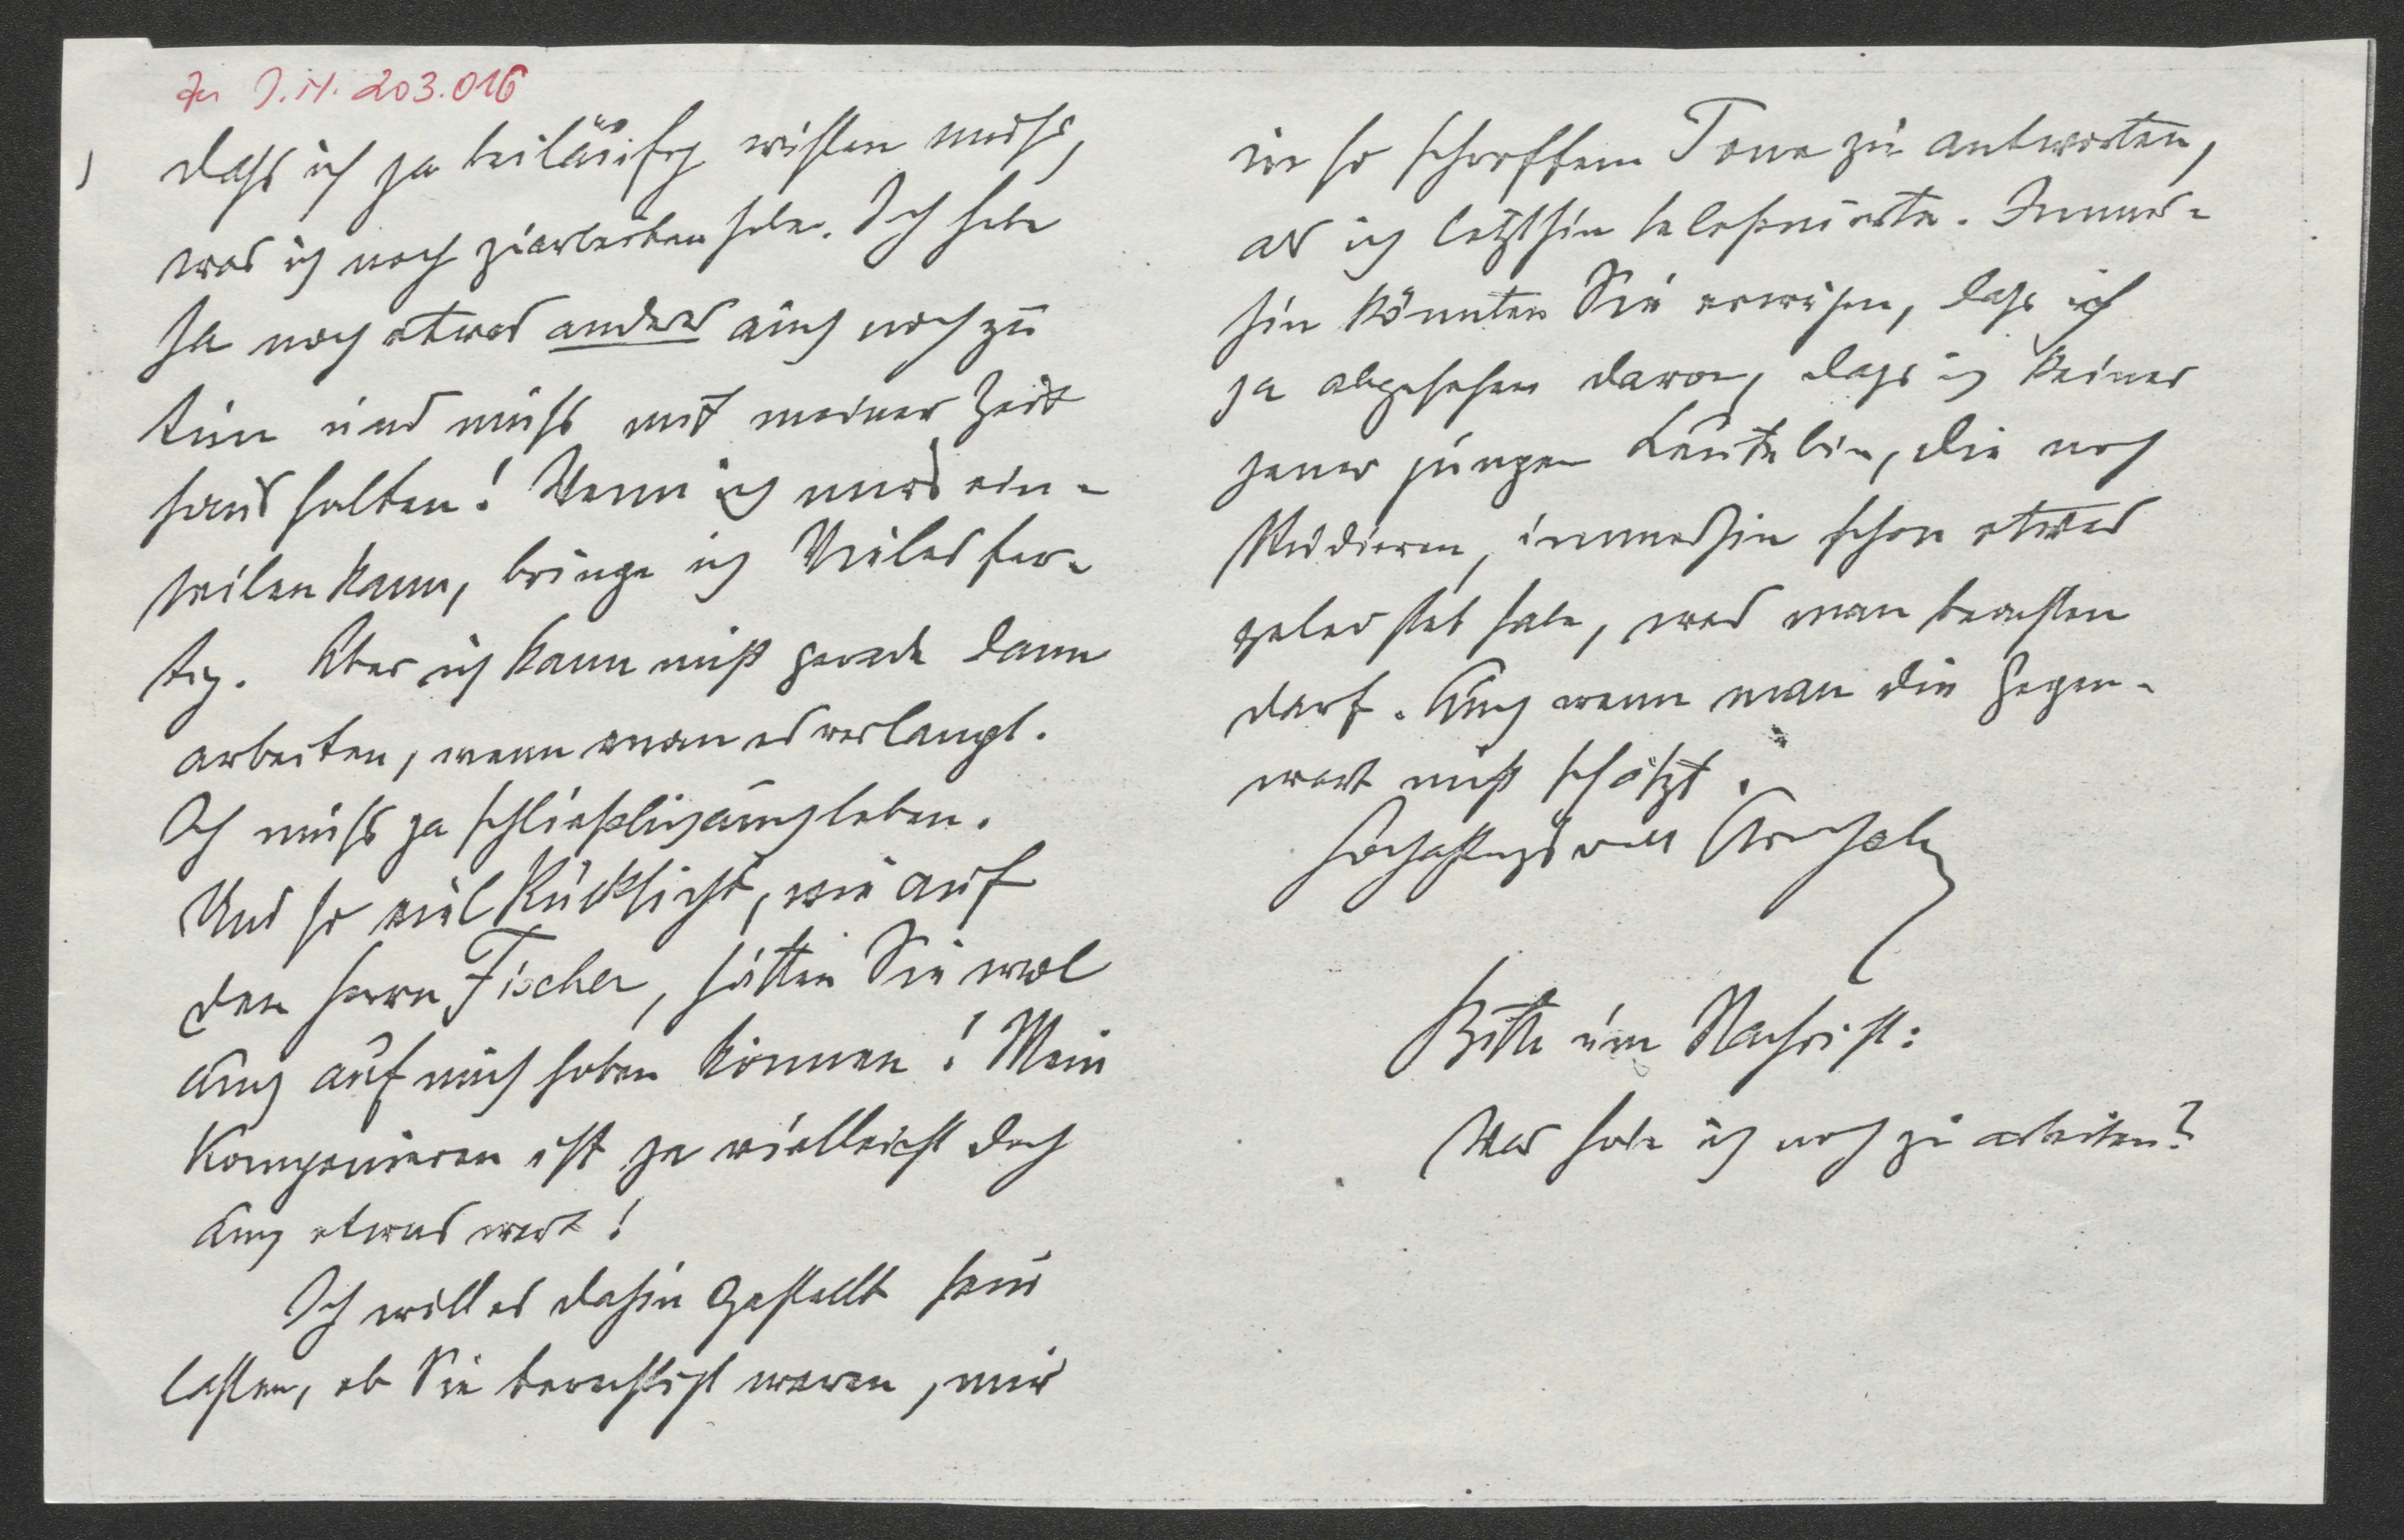 Zu I.N. 203.016
dass ich ja beiläufig wissen muss,
was ich noch zuarbeiten habe. Ich habe
ja noch etwas anderes auch noch zu
tun und muss mit meiner Zeit
haushalten! Wenn ich mirs ein-
teilen kann, bringe ich Vieles fer-
tig. Aber ich kann nicht gerade dann
arbeiten, wenn man es verlangt.
Ich muss ja schließlich auch leben.
Und so viel Rücksicht, wie auf
den Herrn Fischer, hätten Sie wol
auch auf mich haben können! Mein
Komponieren ist ja vielleicht doch
auch etwas wert!
Ich will es dahin gestellt sein
lassen, ob Sie berechtigt waren, mir
in so schroffem Tone zu antworten,
als ich letzthin telefonierte. Immer-
hin könnten Sie erwägen, dass ich
ja abgesehen davon, dass ich keiner
jener jungen Leute bin, die noch
studieren, immerhin schon etwas
geleistet habe, was man beachten
darf. Auch wenn man die Gegen-
wart nicht schätzt.
Hochachtungsvoll
Bitte um Nachricht:
Was habe ich noch zu arbeiten?